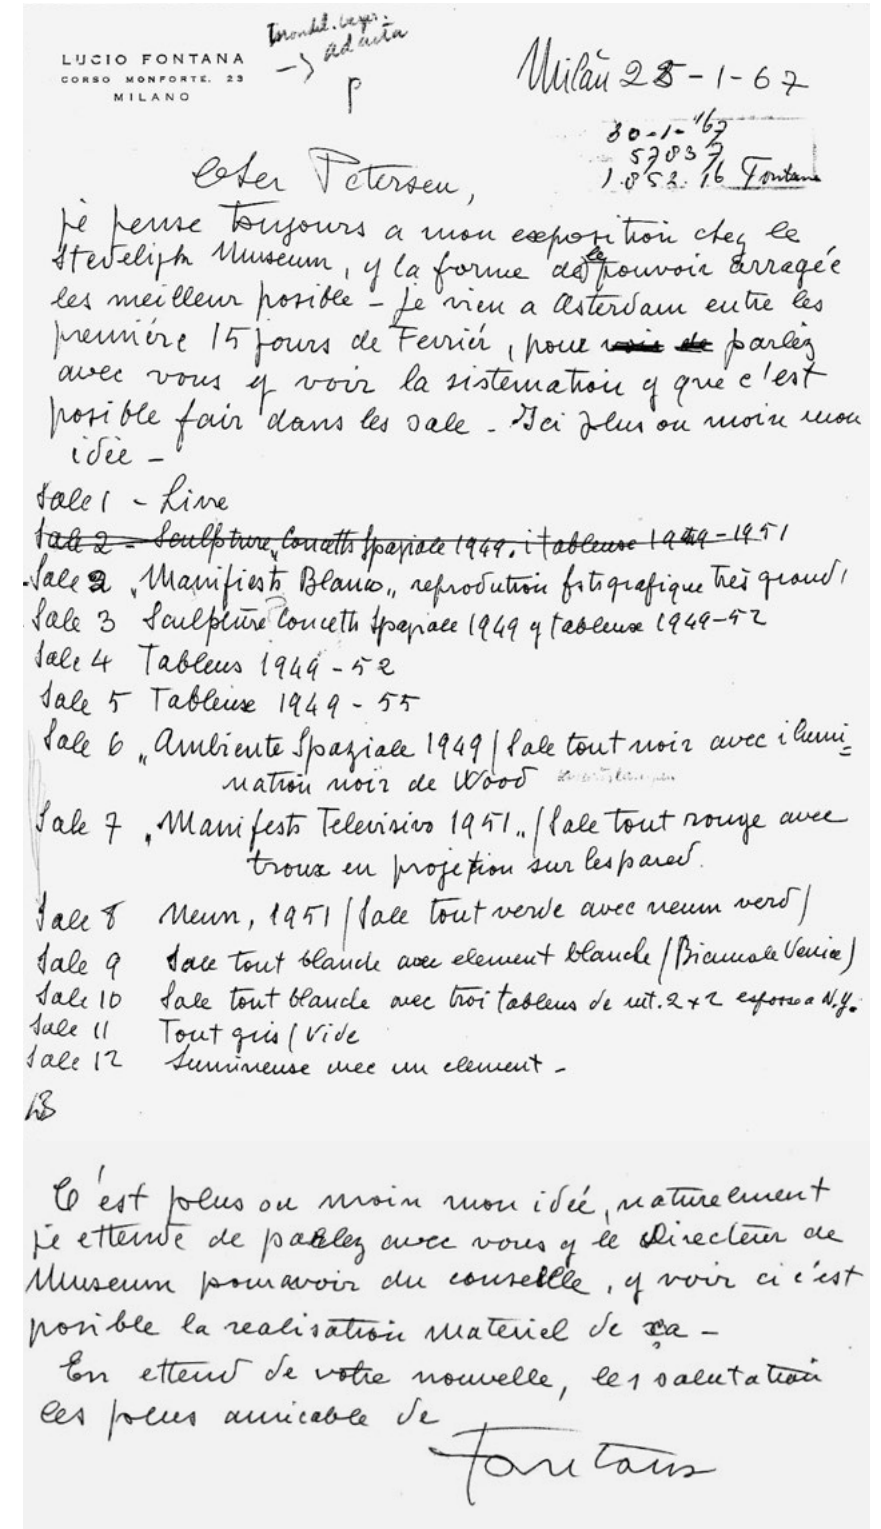 LUCIO FONTANA
CORSO MONFORTE, 23
MILANO
ad acta
p
Milàn 28-1-67
30-1-'67
57837
1.853.16 Fontana
Cher Petersen,
je pense toujours a mon exposition chez le
Stedelijk Museum, y la forme de le pouvoir arragée
les meilleur posible - je vien a Asterdam entre les
première 15 jours de Fevriér, pour parlèz
avec vous y voir la sistemation y que c'est
posible fair dans les sale - Ici plus ou moin mon
idée -
Sale 1 - Livre
Sale 2 - Sculpture „Concetto Spaziale 1949. i tableuse 1949-1951
Sale 2 „Manifiesto Blanco„ reprodution fotografique très grand/
Sale 3 Sculpture Concetto Spaziale 1949 y tableux 1949-52
Sale 4 Tableus 1949-52
Sale 5 Tableux 1949-55
Sale 6 „Ambiente Spaziale 1949/Sale tout noir avec ilumi=
nation noir de Wood
Sale 7 „Manifesto Televisivo 1951„/Sale tout rouge avec
troux en projetion sur les pared.
Sale 8 Neun, 1951/Sale tout verde avec neum verd/
Sale 9 Sale tout blanche avec element blanche/Biennale Venice)
Sale 10 Sale tout blanche avec troi tableus de mt. 2x2 esposso a N.Y.
Sale 11 Tout gris/Vide
Sale 12 Lumineuse avec un element -
13
C'est plus ou moin mon idée, naturelment
je ettende de parlez avec vous y le Directeur de
Museum pour avoir du conseille, y voir ci c'est
posible la realisation materiel de ça -
En ettend de votre nouvelle, les salutation
les plus amicable de
Fontana